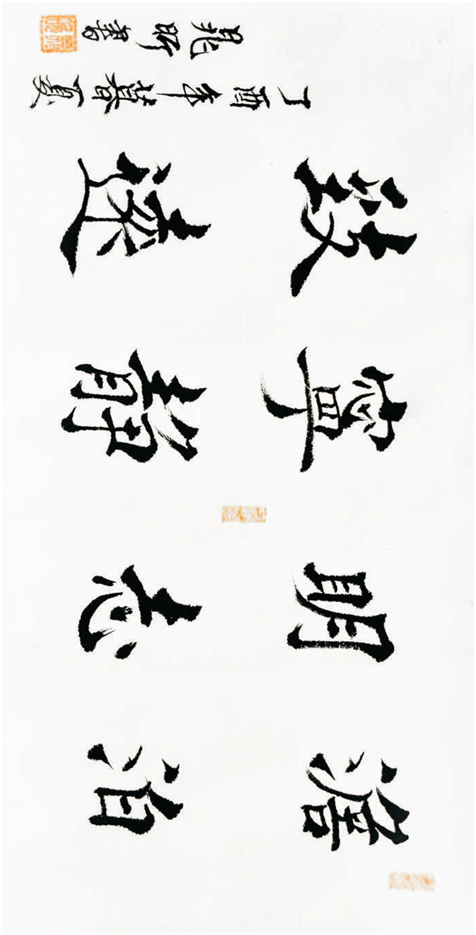 澹泊
明志
寧靜
致遠
丁酉年暮夏
晁昕書